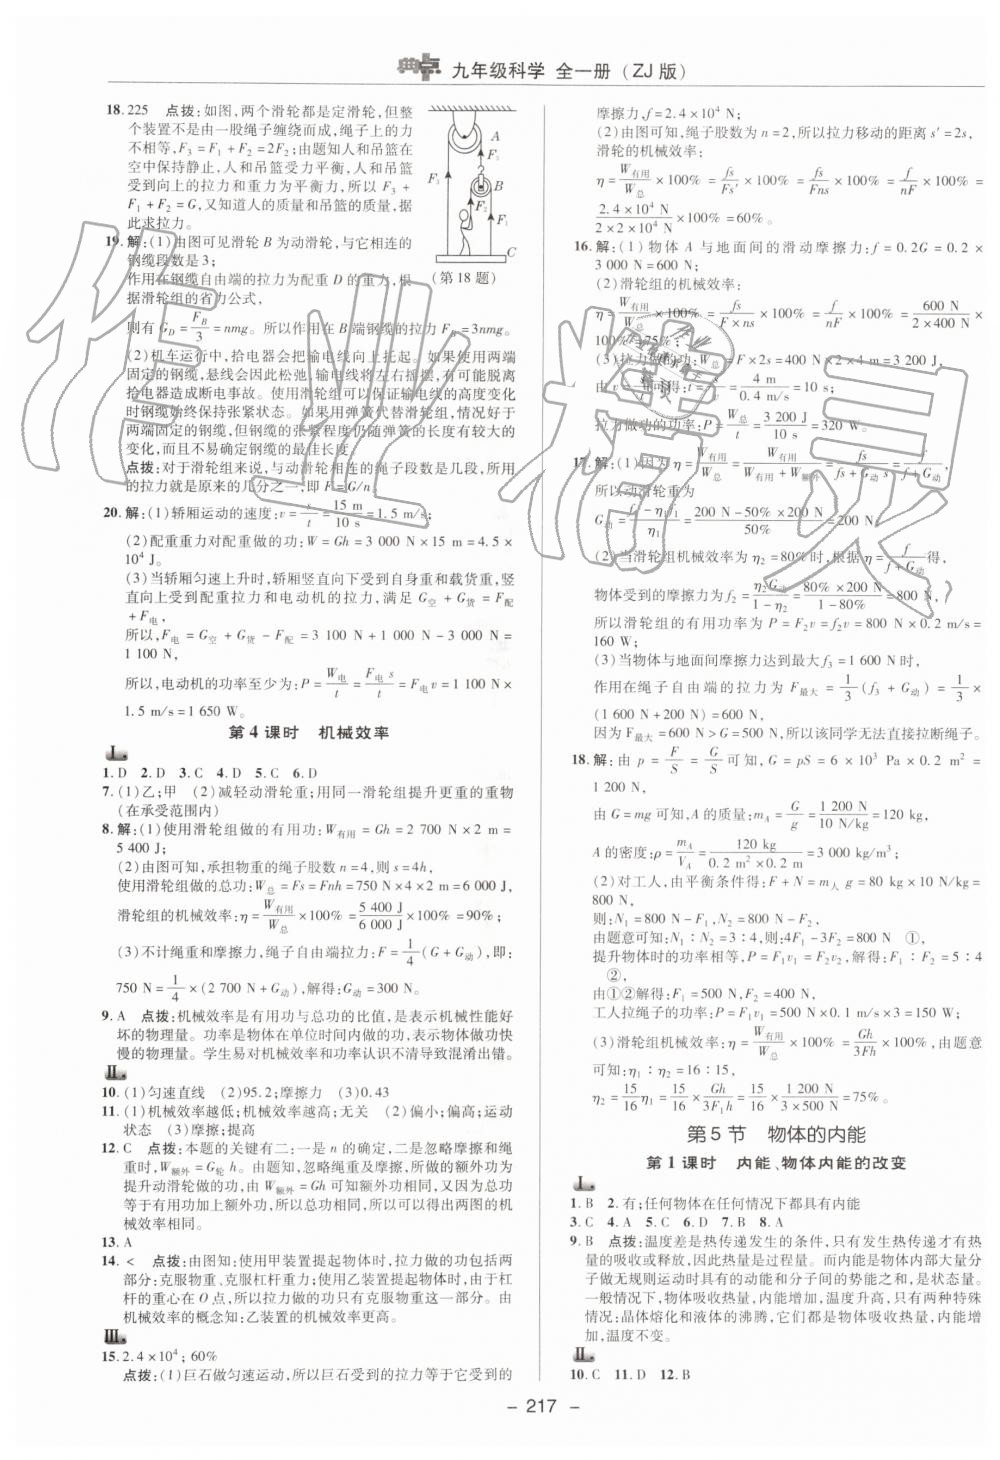 典点 九年级科学 全一册(ZJ版)
18. 225 点拨:如图,两个滑轮都是定滑轮,但整
个装置不是由一股绳子缠绕而成,绳子上的力
不相等,F₃=F₁+F₂=2F₂;由题知人和吊篮在
空中保持静止,人和吊篮受力平衡,人和吊篮
受到向上的拉力和重力为平衡力,所以 F₃+
F₁+F₂=G,又知道人的质量和吊篮的质量,据
此求拉力。
A
F₃
F₃
B
F₂
F₁
C
(第18题)
19. 解:(1)由图可见滑轮 B 为动滑轮,与它相连的
钢缆段数是3;
作用在钢缆自由端的拉力为配重 D 的重力,根
据滑轮组的省力公式,
则有 G_D=F_B/3=nmg。所以作用在B端钢缆的拉力 F_B=3nmg。
(2)机车运行中,拾电器会把输电线向上托起。如果使用两端
固定的钢缆,悬线会因此松弛,输电线将左右摇摆,有可能引起
拾电器造成断电事故。使用滑轮组可以保证输电线的高度变化
时钢缆始终保持张紧状态。如果用弹簧代替滑轮组,情况好于
两端固定的钢缆,但钢缆的张紧程度仍随弹簧的长度有较大的
变化,而且不易确定钢缆的最佳长度。
点拨:对于滑轮组来说,与动滑轮相连的绳子段数是几段,所用
的拉力就是原来的几分之一,即 F=G/n。
20. 解:(1)轿厢运动的速度:v=s/t=15 m/10 s=1.5 m/s;
(2)配重重力对配重做的功:W=Gh=3 000 N×15 m=4.5×
10⁴ J。
(3)当轿厢匀速上升时,轿厢竖直向下受到自身重和载货重,竖
直向上受到配重拉力和电动机的拉力,满足 G空+G货=F配
+F电,
所以,F电=G空+G货-F配=3 100 N+1 000 N-3 000 N=
1 100 N,
所以,电动机的功率至少为:P=W电/t=F电 s/t=F电v=1 100 N×
1.5 m/s=1 650 W。
第4课时 机械效率
Ⅰ.
1. D 2. D 3. C 4. D 5. C 6. D
7. (1)乙;甲 (2)减轻动滑轮重;用同一滑轮组提升更重的重物
(在承受范围内)
8. 解:(1)使用滑轮组做的有用功:W有用=Gh=2 700 N×2 m=
5 400 J;
(2)由图可知,承担物重的绳子股数 n=4,则 s=4h,
使用滑轮组做的总功:W总=Fs=Fnh=750 N×4×2 m=6 000 J,
滑轮组的机械效率:η=W有用/W总×100%=5 400 J/6 000 J×100%=90%;
(3)不计绳重和摩擦力,绳子自由端拉力:F=1/4(G+G动),即:
750 N=1/4×(2 700 N+G动),解得:G动=300 N。
9. A 点拨:机械效率是有用功与总功的比值,是表示机械性能好
坏的物理量。功率是物体在单位时间内做的功,表示物体做功快
慢的物理量。学生易对机械效率和功率认识不清导致混淆出错。
Ⅱ.
10. (1)匀速直线 (2)95.2;摩擦力 (3)0.43
11. (1)机械效率越低;机械效率越高;无关 (2)偏小;偏高;运动
状态 (3)摩擦;提高
12. C 点拨:本题的关键有二:一是 n 的确定,二是忽略摩擦和绳
重时,W额外=G轮 h。由题知,忽略绳重及摩擦,所做的额外功为
提升动滑轮做的功,由 W额外=Gh可知额外功相同,又因为总功
等于有用功加上额外功,所以总功相同,所以可以得出两图的机
械效率相同。
13. A
14. < 点拨:由图知:使用甲装置提起物体时,拉力做的功包括两
部分:克服物重、克服杠杆重力;使用乙装置提起物体时,由于杠
杆的重心在 O 点,所以拉力做的功只有克服物体的重力;由
机械效率的概念知:乙装置的机械效率更高。
Ⅲ.
15. 2.4×10⁴;60%
点拨:(1)巨石做匀速运动,所以巨石受到的拉力等于它受到的
摩擦力,f=2.4×10⁴ N;
(2)由图可知,绳子股数为 n=2,所以拉力移动的距离 s′=2s,
滑轮的机械效率:
η=W有用/W总×100%=fs/Fs′×100%=fs/Fns×100%=f/nF×100%=
2.4×10⁴ N/2×2×10⁴ N×100%=60%。
16. 解:(1)物体 A 与地面间的滑动摩擦力:f=0.2G=0.2×
3 000 N=600 N;
(2)滑轮组的机械效率:
η=W有用/W总×100%=fs/F×ns×100%=f/nF×100%=600 N/2×400 N×
100%=75%;
(3)拉力做的功:W总=F×2s=400 N×2×4 m=3 200 J,
由 v=s/t可得:t=s/v=4 m/0.4 m/s=10 s;
拉力做功的功率:P=W总/t=3 200 J/10 s=320 W。
17. 解:(1)因为 η=W有用/W总=W有用/W有用+W额外=fs/fs+G动s=f/f+G动,
所以动滑轮重为
G动=f-η₁f/η₁=200 N-50%×200 N/50%=200 N。
(2)当滑轮组机械效率为 η₂=80%时,根据 η=f/f+G动得,
物体受到的摩擦力为 f₂=η₂G动/1-η₂=80%×200 N/1-80%=800 N,
所以滑轮组的有用功率为 P=F₂v=f₂v=800 N×0.2 m/s=
160 W;
(3)当物体与地面间摩擦力达到最大 f₃=1 600 N时,
作用在绳子自由端的拉力为 F最大=1/3(f₃+G动)=1/3×
(1 600 N+200 N)=600 N,
因为 F最大=600 N>G=500 N,所以该同学无法直接拉断绳子。
18. 解:由 p=F/S=G/S可知,G=pS=6×10³ Pa×0.2 m²=
1 200 N,
由 G=mg 可知,A 的质量:m_A=G/g=1 200 N/10 N/kg=120 kg,
A 的密度:ρ=m_A/V_A=120 kg/0.2 m²×0.2 m=3 000 kg/m³;
(2)对工人,由平衡条件得:F+N=m人 g=80 kg×10 N/kg=
800 N,
则:N₁=800 N-F₁,N₂=800 N-F₂,
由题意可知:N₁∶N₂=3∶4,则:4F₁-3F₂=800 N ①,
提升物体时的功率相等,P=F₁v₁=F₂v₂,解得:F₁∶F₂=5∶4
②,
由①②解得:F₁=500 N,F₂=400 N,
工人拉绳子的功率:P=F₁v₁=500 N×0.1 m/s×3=150 W;
(3)滑轮组机械效率:η=W有用/W总×100%=Gh/3Fh×100%,由题意
可知:η₁∶η₂=16∶15,
η₂=15/16η₁=15/16×Gh/3F₁h=15/16×1 200 N/3×500 N×100%=75%。
第5节 物体的内能
第1课时 内能、物体内能的改变
Ⅰ.
1. B 2. 有;任何物体在任何情况下都具有内能
3. C 4. A 5. C 6. D 7. B 8. A
9. B 点拨:温度差是热传递发生的条件,只有发生热传递才有热
量的吸收或释放,因此热量是过程量。而内能是物体内部大量分
子做无规则运动时具有的动能和分子间的势能之和,是状态量。
一般情况下,物体吸收热量,内能增加,温度升高,只有两种特殊
情况:晶体熔化和液体的沸腾,它们都是物体吸收热量,内能增
加,温度不变。
Ⅱ.
10. C 11. D 12. B
- 217 -
作业精灵